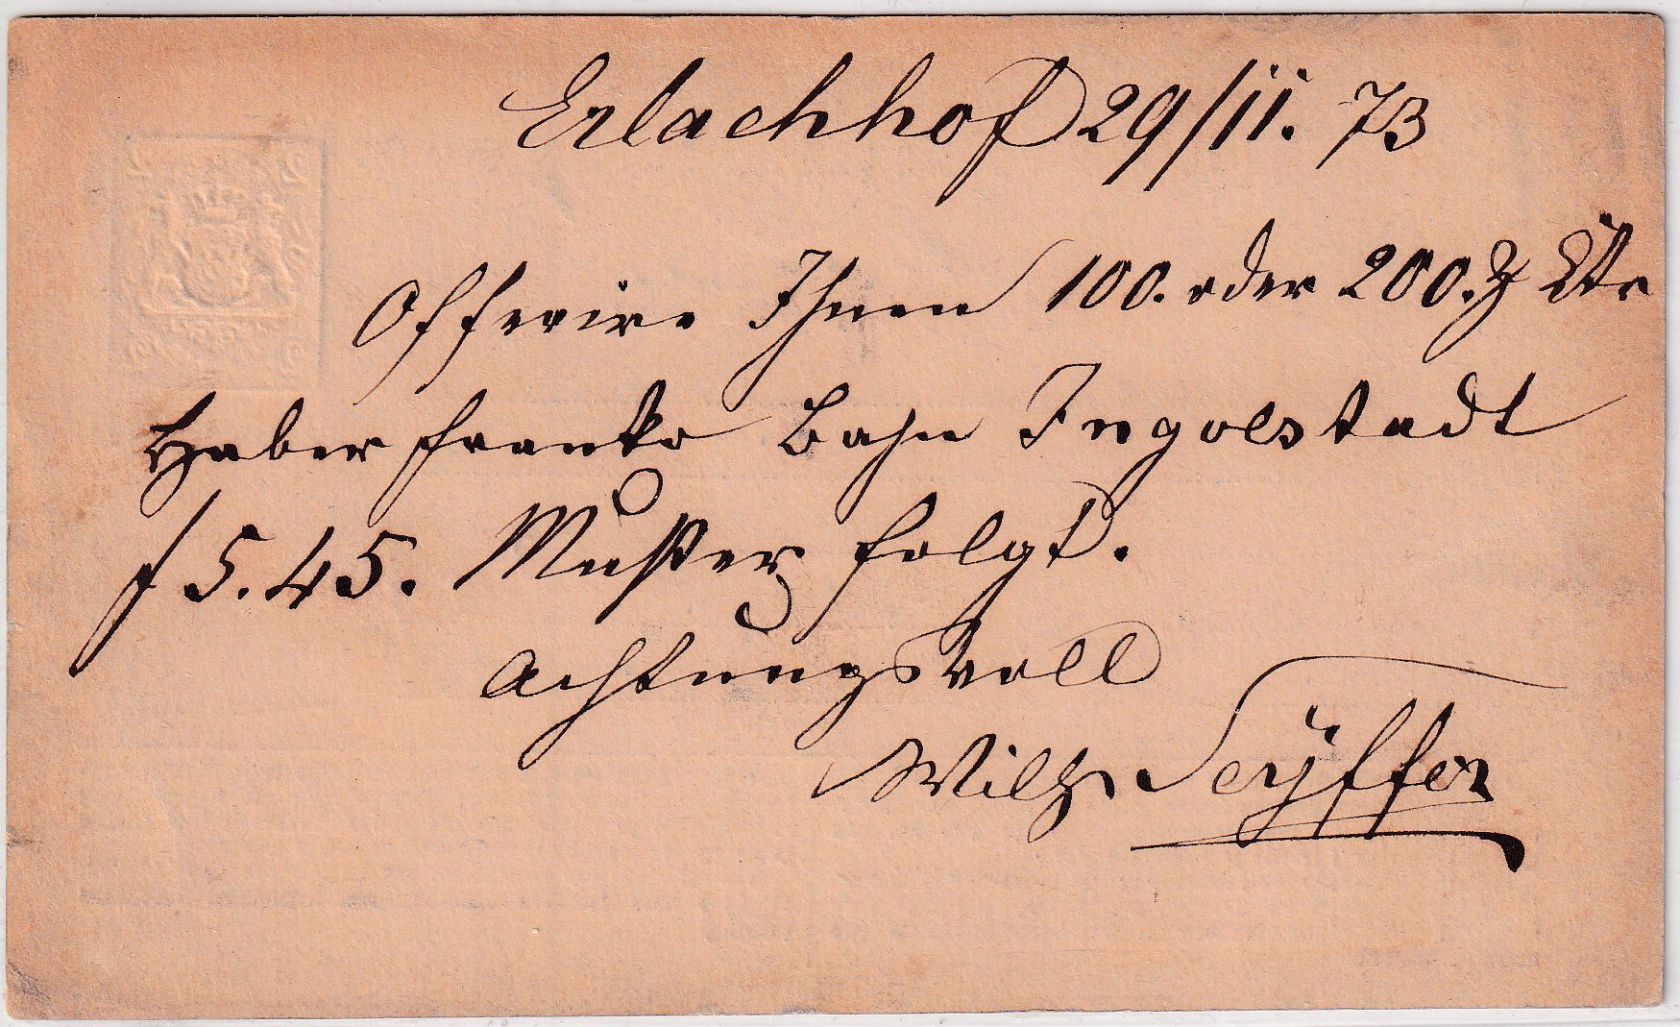 Erlachhof 29/11. 73
Offerire Ihnen 100. oder 200. Z Ctr
Haber franko Bahn Ingolstadt
f 5. 45. Muster folgt.
Achtungsvoll
Wilh Seÿffer